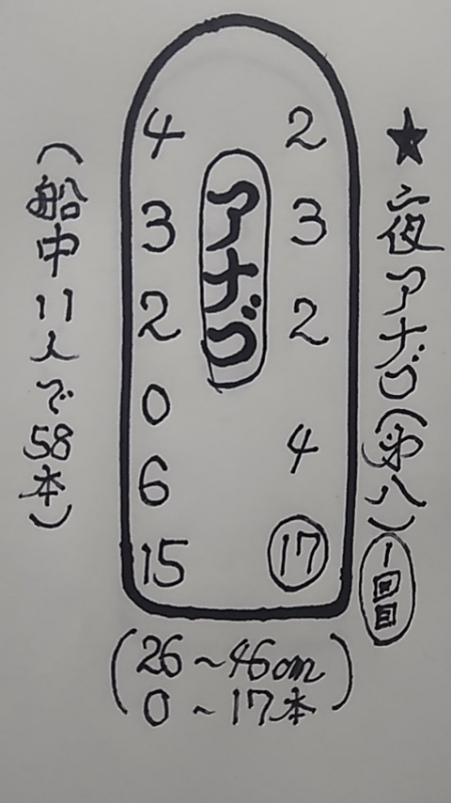 ★夜アナゴ(第八)1回目
アナゴ
4 2
3 3
2 2
0
4
6
15 17
(船中11人で58本)
(26～46cm
0～17本)